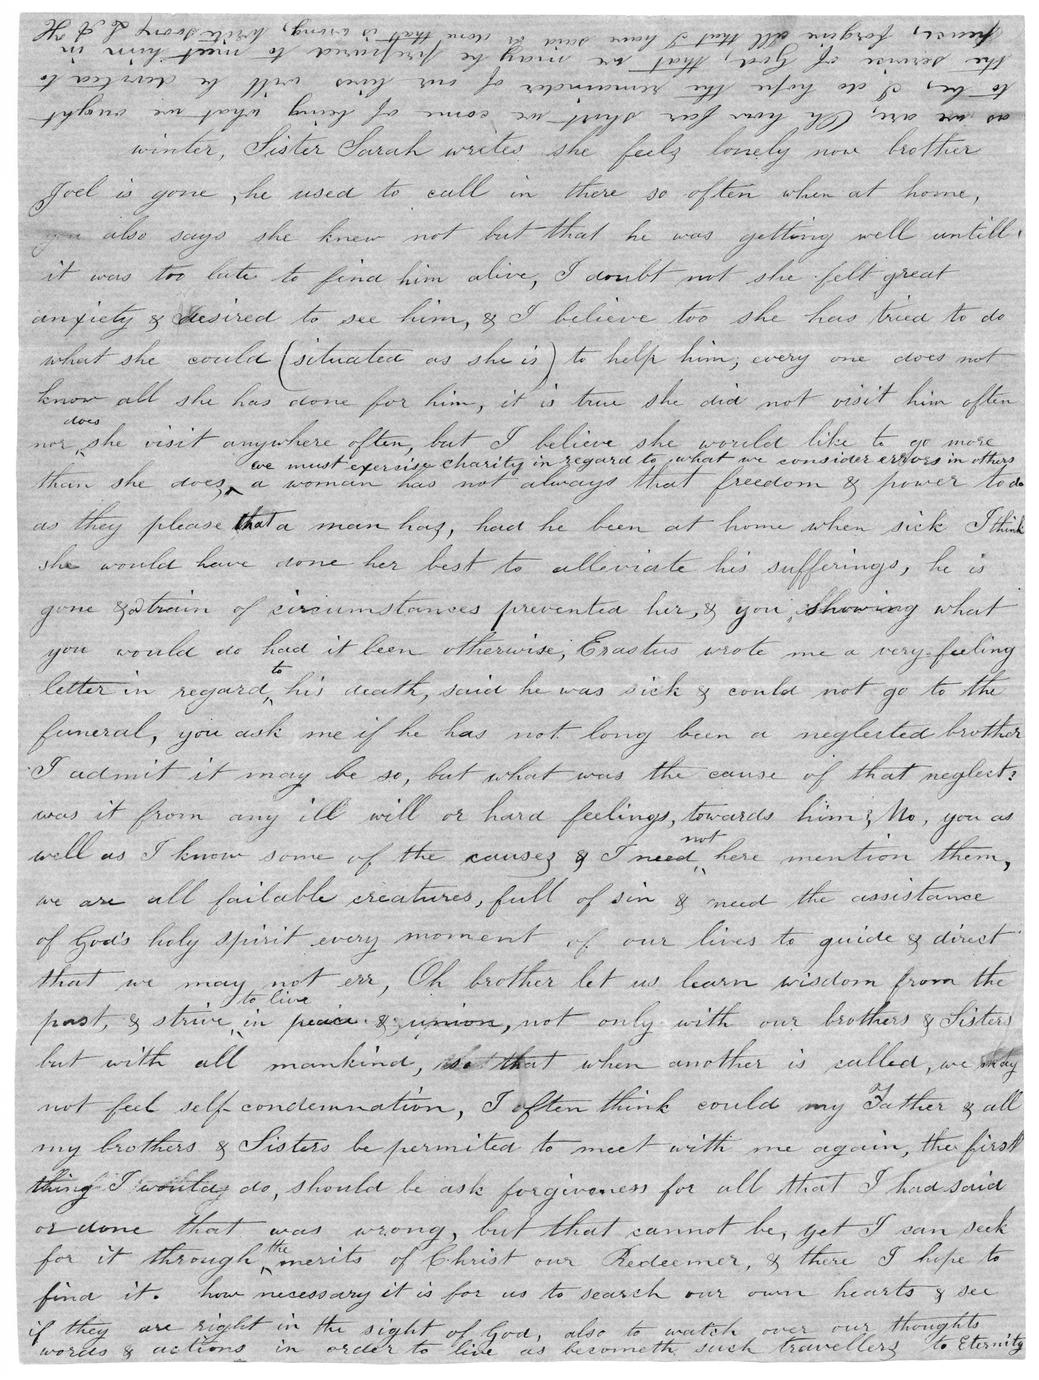 winter, Sister Sarah writes she feels lonely now brother
Joel is gone, he used to call in there so often when at home,
you also says she knew not but that he was getting well untill
it was too late to find him alive, I doubt not she felt great
anxiety & desired to see him, & I believe too she has tried to do
what she could (situated as she is) to help him; every one does not
know all she has done for him, it is true she did not visit him often
does
nor she visit anywhere often, but I believe she would like to go more
we must exercise charity in regard to what we consider errors in others
than she does, a woman has not always that freedom & power to do
as they please that a man has, had he been at home when sick I think
she would have done her best to alleviate his sufferings, he is
gone & train of circumstances prevented her, & you, showing what
you would do had it been otherwise, Erastus wrote me a very feeling
to
letter in regard his death, said he was sick & could not go to the
funeral, you ask me if he has not long been a neglected brother
I admit it may be so, but what was the cause of that neglect?
was it from any ill will or hard feelings, towards him? No, you as
not
well as I know some of the causes & I need here mention them,
we are all failable creatures, full of sin & need the assistance
of God's holy spirit every moment of our lives to guide & direct
that we may not err, Oh brother let us learn wisdom from the
to live
past, & strive in peace & union, not only with our brothers & Sisters
but with all mankind, so that when another is called, we may
not feel self-condemnation, I often think could my Father & all
my brothers & Sisters be permited to meet with me again, the first
thing I would do, should be ask forgiveness for all that I had said
or done that was wrong, but that cannot be, yet I can seek
the
for it through merits of Christ our Redeemer, & there I hope to
find it. how necessary it is for us to search our own hearts & see
if they are right in the sight of God, also to watch over our thoughts
words & actions in order to live as becometh such travellers to Eternity
as we are, Oh how far short we come of being what we ought
to be, I do hope the remainder of our lives will be devoted to
the service of God, that we may be prepared to meet him in
peace, forgive all that I have said or done that is wrong, write soon, L A H